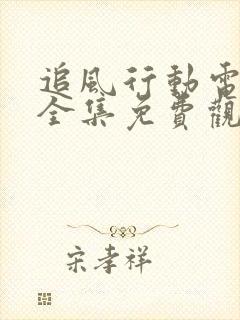 追风行動電
全集免費觀
宋孝祥